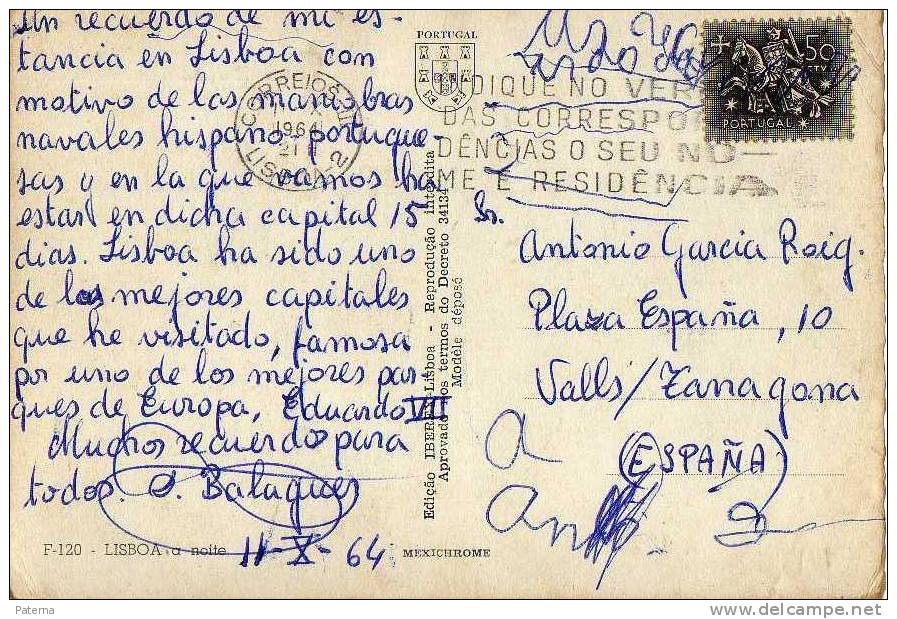 Un recuerdo de mi es-
tancia en Lisboa con
motivo de las maniobras
navales hispano-portugue-
sas y en la que vamos ha
estar en dicha capital 15
dias. Lisboa ha sido uno
de las mejores capitales
que he visitado, famosa
por uno de los mejores par-
ques de Europa, Eduardo VII
Muchos recuerdos para
todos.
11-X-64
F-120 - LISBOA a noite
MEXICHROME
PORTUGAL
Edição IBERIA Lisboa - Reprodução interdita
Aprovado nos termos do Decreto 34134
Modèle déposé
CORREIOS
1964
21
LISBOA 2
INDIQUE NO VER
DAS CORRESPO
DÊNCIAS O SEU NO—
ME E RESIDÊNCIA
50
CTV
PORTUGAL
Sr.
Antonio Garcia Roig.
Plaza España, 10
Valls/Tarragona
(ESPAÑA)
a
Paterna
www.delcampe.net